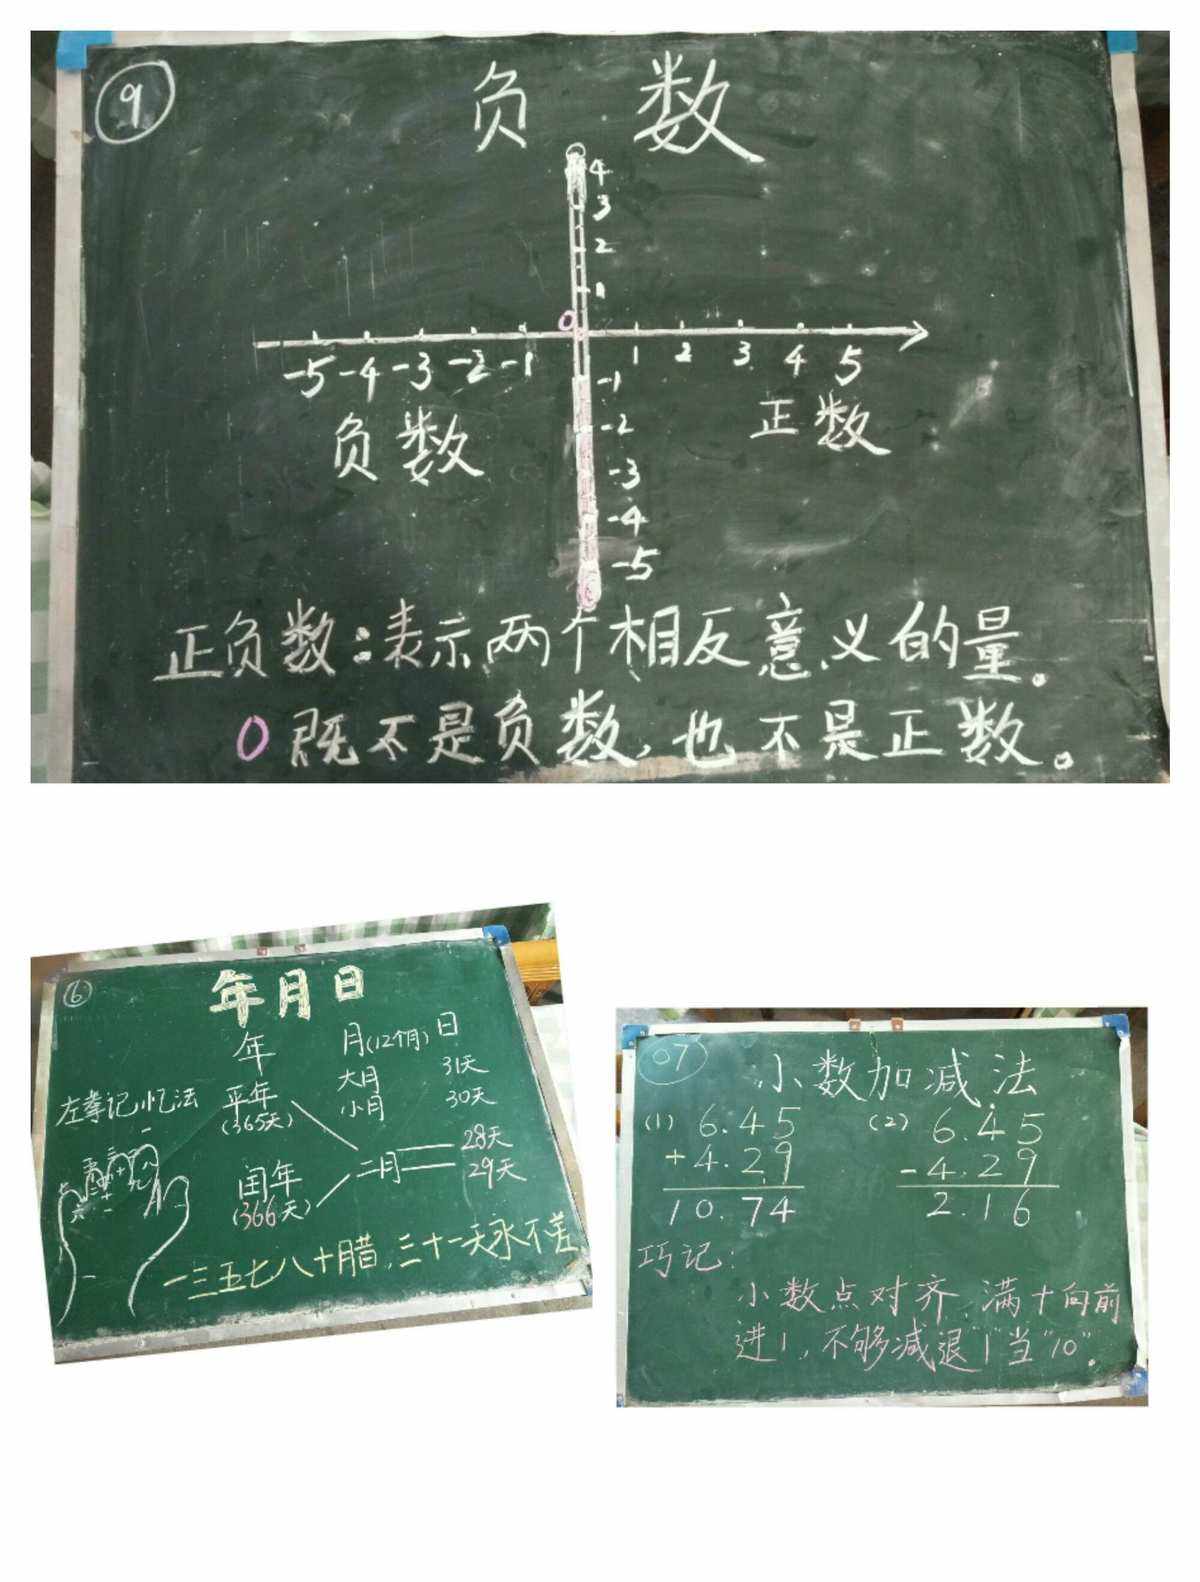 9
负 数
4
3
2
1
0
-5 -4 -3 -2 -1 1 2 3 4 5
-1
-2
-3
-4
-5
负数 正数
正负数:表示两个相反意义的量。
0既不是负数,也不是正数。
6
年月日
年 月(12个月) 日
左拳记忆法 平年 大月 31天
(365天) 小月 30天
28天
闰年 二月 29天
(366天)
一三五七八十腊,三十一天永不差
07
小数加减法
(1) 6.45 (2) 6.45
+4.29 -4.29
10.74 2.16
巧记:
小数点对齐,满十向前
进1,不够减退"1"当"10"。